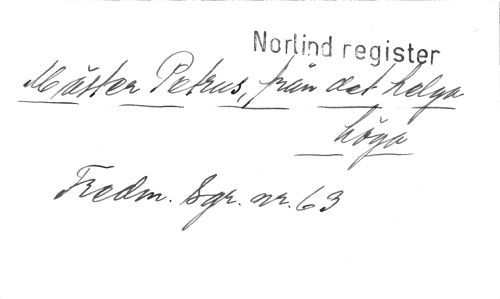 Norlind register
Mäster Petrus, från det helga
höga
Fredm. Sgr. nr. 63